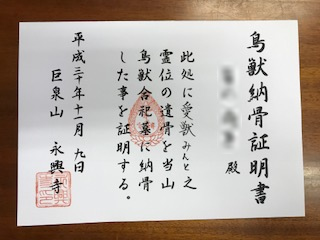 鳥獣納骨証明書
殿
此処に愛獣みんと之
霊位の遺骨を当山
鳥獣合祀墓に納骨
した事を証明する。
平成三十年十一月九日
巨泉山 永興寺